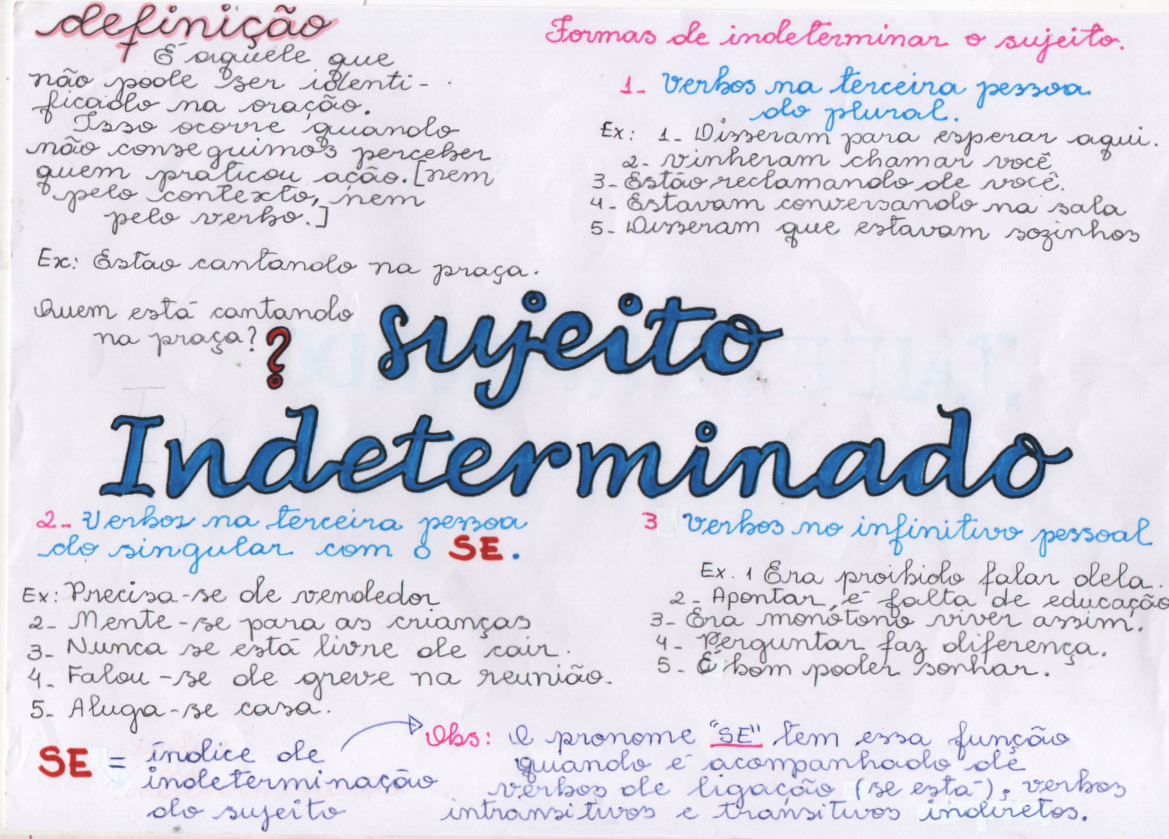 definição
É aquele que
não pode ser identi-
ficado na oração.
Isso ocorre quando
não conseguimos perceber
quem praticou ação. [nem
pelo contexto, nem
pelo verbo.]
Ex: Estao cantando na praça.
Quem está cantando
na praça? ?
Formas de indeterminar o sujeito.
1- Verbos na terceira pessoa
do plural.
Ex: 1- Disseram para esperar aqui.
2- vinheram chamar você
3- Estão reclamando de você.
4- Estavam conversando na sala
5- Disseram que estavam sozinhos
sujeito
Indeterminado
2- Verbos na terceira pessoa
do singular com o SE.
Ex: Precisa-se de vendedor
2- Mente-se para as crianças
3- Nunca se está livre de cair.
4- Falou-se de greve na reunião.
5- Aluga-se casa.
SE = índice de
indeterminação
do sujeito
3 Verbos no infinitivo pessoal
Ex. 1 Era proibido falar dela.
2- Apontar, é falta de educação
3- Era monótono viver assim.
4- Perguntar faz diferença.
5- É bom poder sonhar.
Obs: O pronome "SE" tem essa função
quando é acompanhado de
verbos de ligação (se está), verbos
intransitivos e transitivos indiretos.